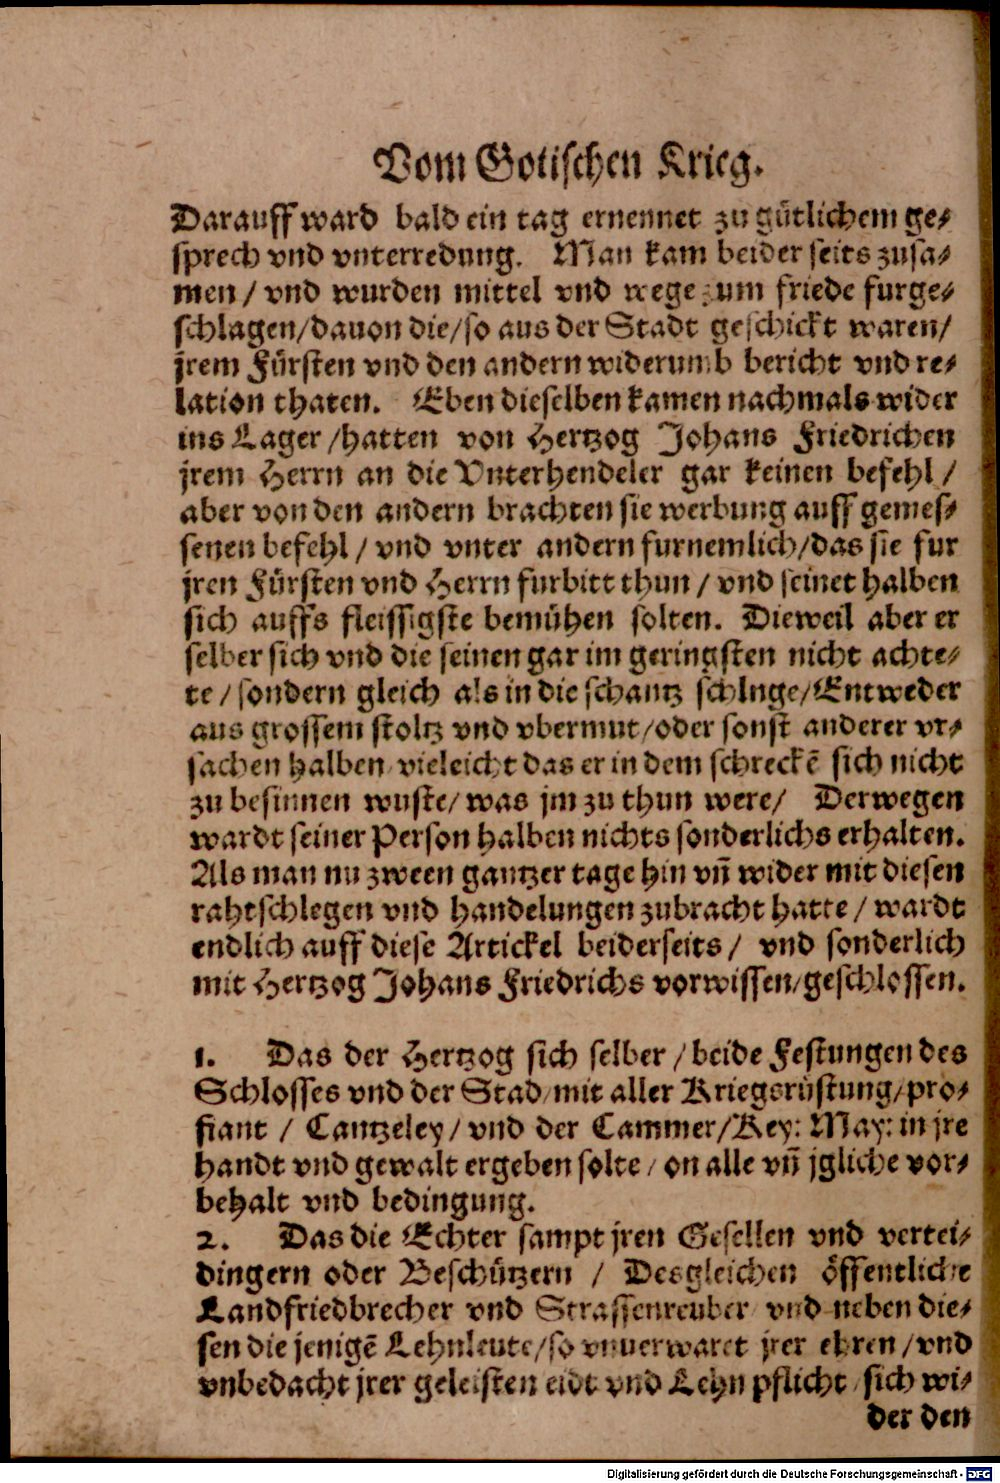 Vom Gotischen Krieg.
Darauff ward bald ein tag ernennet zu gütlichem ge-
sprech vnd vnterredung. Man kam beider seits zusa-
men / vnd wurden mittel vnd wege zum friede furge-
schlagen/dauon die/so aus der Stadt geschickt waren/
jrem Fürsten vnd den andern widerumb bericht vnd re-
lation thaten. Eben dieselben kamen nachmals wider
ins Lager /hatten von Hertzog Johans Friedrichen
jrem Herrn an die Vnterhendeler gar keinen befehl /
aber von den andern brachten sie werbung auff gemes-
senen befehl / vnd vnter andern furnemlich/das sie fur
jren Fürsten vnd Herrn furbitt thun / vnd seinet halben
sich auffs fleissigste bemühen solten. Dieweil aber er
selber sich vnd die seinen gar im geringsten nicht achte-
te / sondern gleich als in die schantz schluge/Entweder
aus grossem stoltz vnd vbermut/oder sonst anderer vr-
sachen halben vieleicht das er in dem schreckē sich nicht
zu besinnen wuste/ was jm zu thun were/ Derwegen
wardt seiner Person halben nichts sonderlichs erhalten.
Als man nu zween gantzer tage hin vñ wider mit diesen
rahtschlegen vnd handelungen zubracht hatte / wardt
endlich auff diese Artickel beiderseits / vnd sonderlich
mit Hertzog Johans Friedrichs vorwissen/geschlossen.
1. Das der Hertzog sich selber / beide Festungen des
Schlosses vnd der Stad/mit aller Kriegsrüstung/pro-
fiant / Cantzeley / vnd der Cammer/Key: May: in jre
handt vnd gewalt ergeben solte / on alle vñ jgliche vor-
behalt vnd bedingung.
2. Das die Echter sampt jren Gesellen vnd vertei-
dingern oder Beschützern / Desgleichen öffentliche
Landfriedbrecher vnd Strassenreuber vnd neben die-
sen die jenigē Lehnleute/so vnuerwaret jrer ehren / vnd
vnbedacht jrer geleisten eidt vnd Lehn pflicht / sich wi-
der den
Digitalisierung gefördert durch die Deutsche Forschungsgemeinschaft - DFG